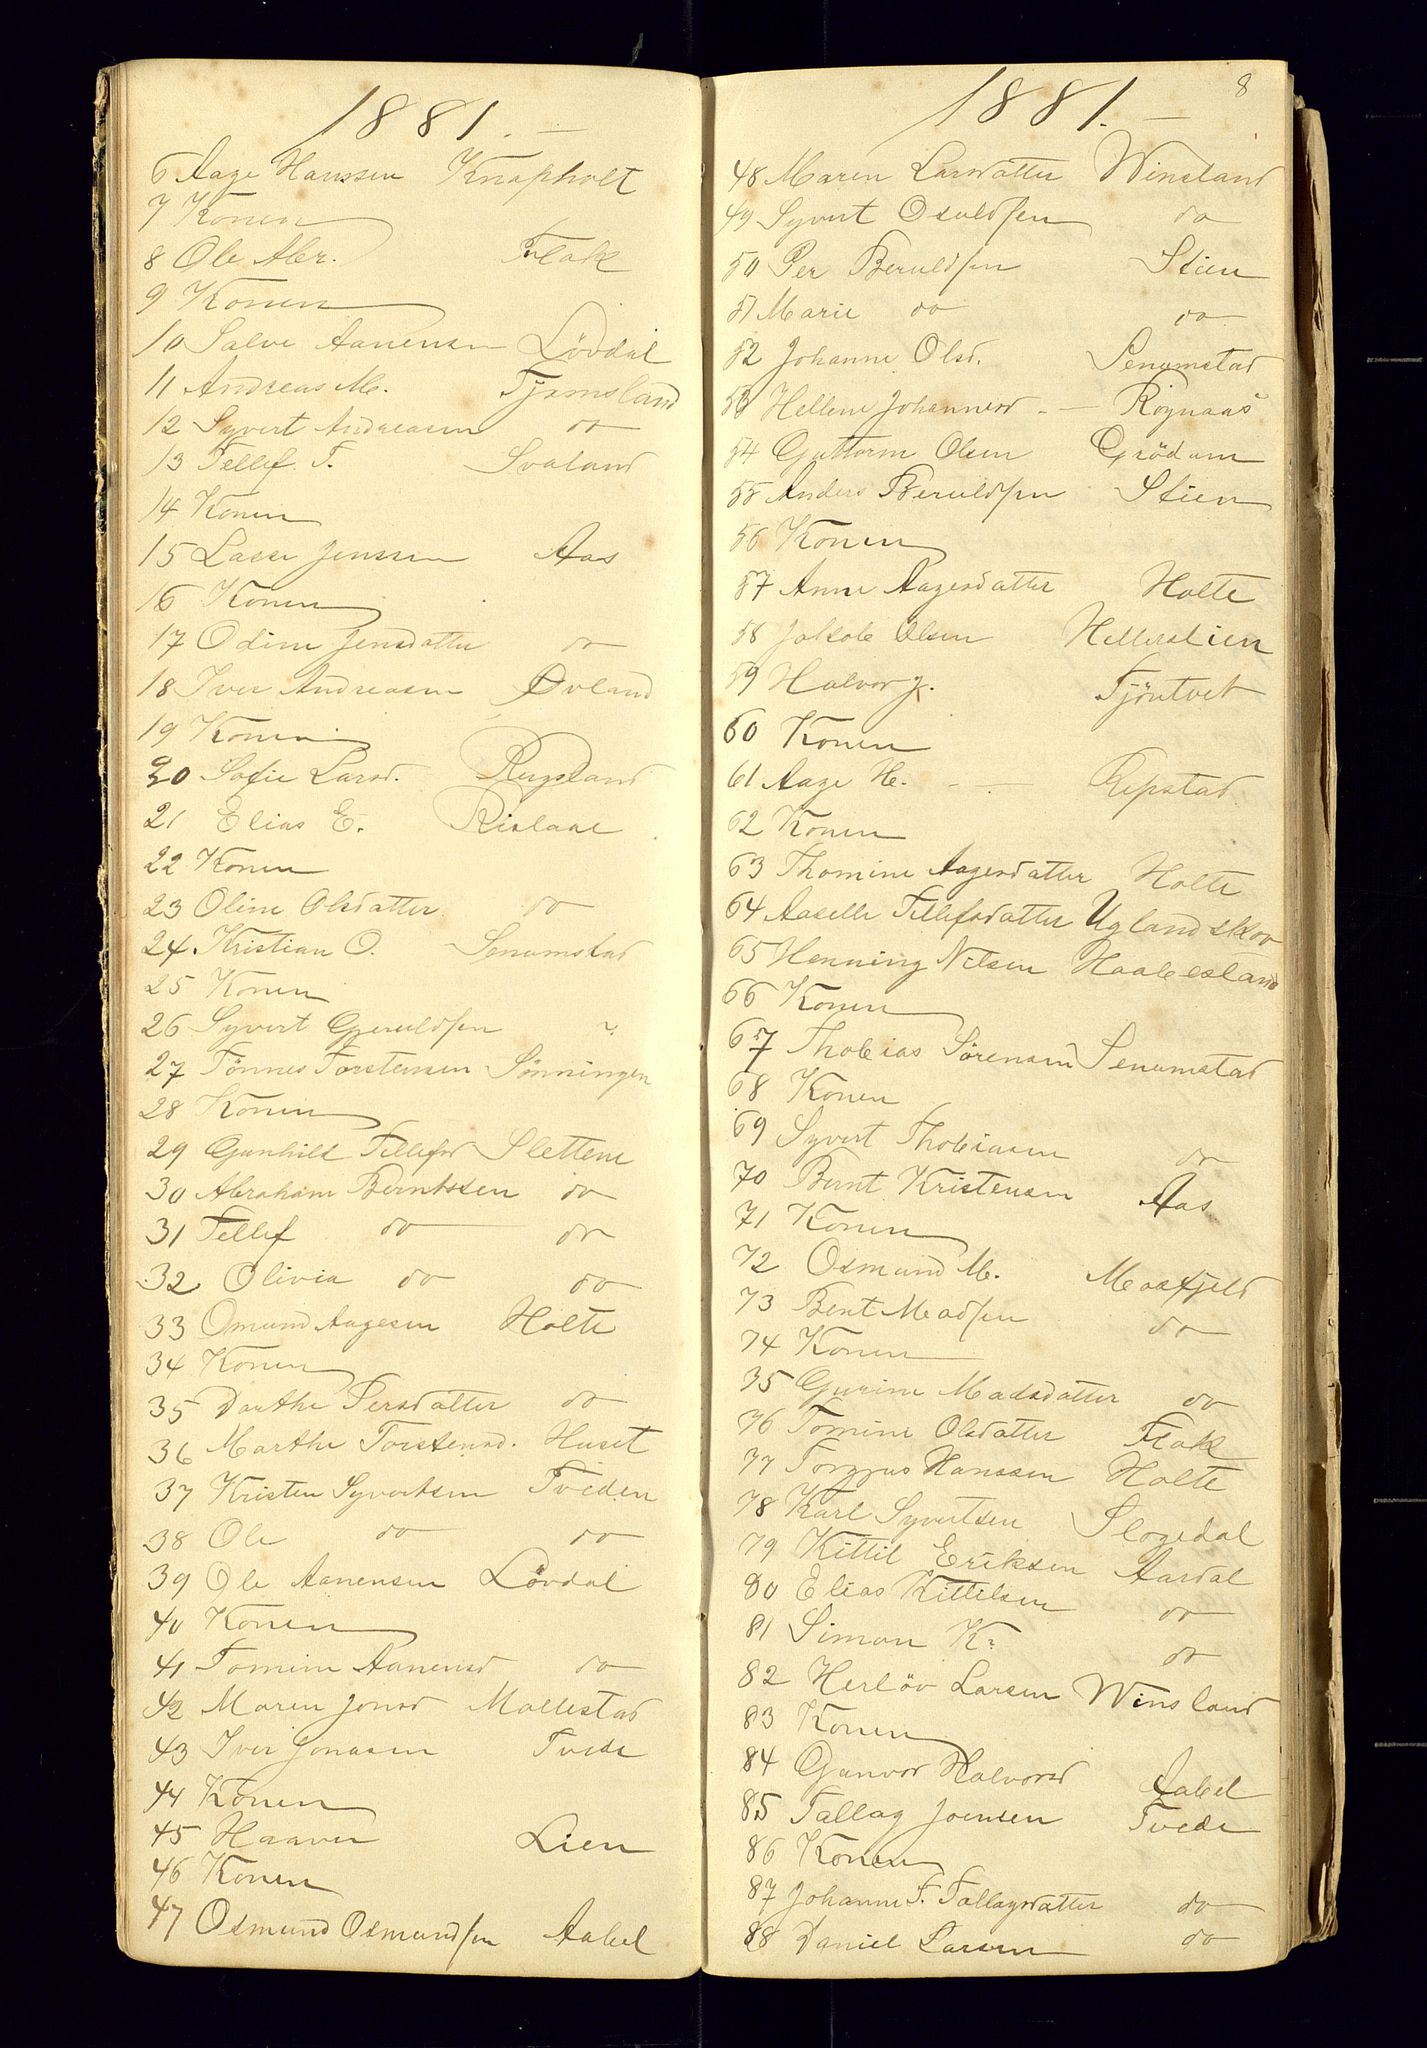 1881. —
6 Aage Hanssen Knapholt
7 Konen
8 Ole Abr. Flak
9 Konen
10 Salve Aanensen Lövdal
11 Andreas M. Tjomsland
12 Syvert Andreasen do
13 Tellef T. Svaland
14 Konen
15 Lasse Jenssen Aas
16 Konen
17 Odine Jensdatter do
18 Iver Andreasen Øvland
19 Konen
20 Sofie Larsd. Rugsland
21 Elias E. Rislaae
22 Konen
23 Oline Olsdatter do
24 Kristian O. Senumstad
25 Konen
26 Syvert Gjeruldsen ?
27 Tönnes Torstensen Sönningen
28 Konen
29 Gunhild Tellefsd Slettene
30 Abraham Berntssen do
31 Tellef do do
32 Olivia do do
33 Omund Aagesen Holte
34 Konen
35 Dorthe Persdatter do
36 Marthe Torstensd. Huset
37 Kristen Syvertsen Tveden
38 Ole do do
39 Ole Aanensen Lövdal
40 Konen
41 Tomine Aanensd do
42 Maren Jonsd Mollestad
43 Iver Jonasen Tvede
44 Konen
45 Haaver Lien
46 Konen
47 Osmund Osmundsen Aabel
8
1881. —
48 Maren Larsdatter Winsland
49 Syvert Osuldsen do
50 Per Beruldsen Stien
51 Marie do do
52 Johanne Olsd. Senumstad
53 Hellene Johannesd - — Rognaas
54 Guttorm Olsen Grödum
55 Anders Beruldsen Stien
56 Konen
57 Anne Aagesdatter Holte
58 Jakob Olsen Hellerslien
59 Halvor J. Tjöntvet
60 Konen
61 Aage H. - — Repstad
62 Konen
63 Thomine Aagesdatter Holte
64 Aaselle Tellefsdatter Uglandskov
65 Henning Nilsen Haabesland
66 Konen
67 Thobias Sörensen Senumstad
68 Konen
69 Syvert Thobiasen do
70 Bernt Kristensen Aas
71 Konen
72 Osmund M. Maasfjeld
73 Bent Madsen do
74 Konen
35 Gurine Madsdatter do
76 Tomine Olsdatter Flak
77 Torgjus Hanssen Holte
78 Karl Syvertsen Slogedal
79 Kittil Eriksen Aardal
80 Elias Kittelsen do
81 Simon K? do
82 Herlöv Larsen Winsland
83 Konen
84 Gunvor Halvorsd Aabel
85 Tallag Joensen Tvede
86 Konen
87 Johanne F. Tallagsdatter do
88 Daniel Larsen do